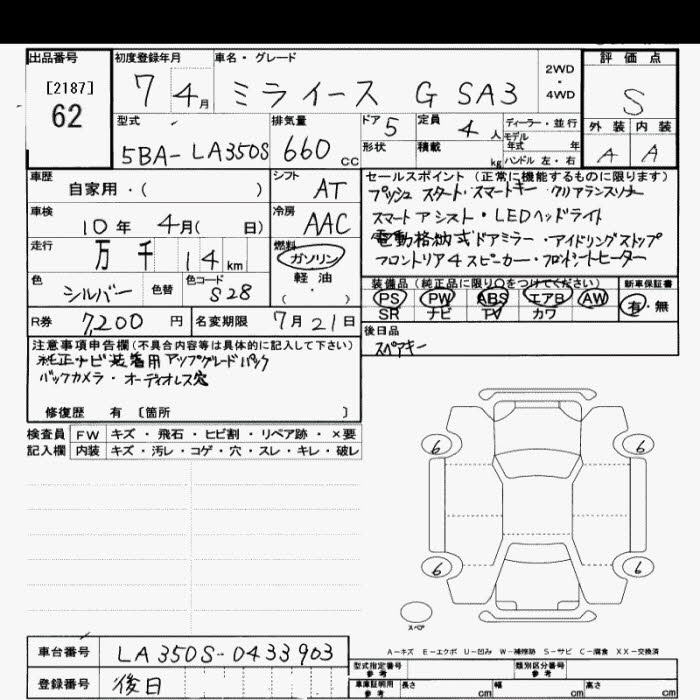 出品番号 初度登録年月 車名・グレード 2WD・4WD 評価点
[2187]
62
7 4月 ミライース G SA3 S
型式 排気量 ドア 定員 ディーラー・並行 外装 内装
5BA-LA350S 660cc 5 4人 モデル年式 年 A A
形状 積載 kg ハンドル 左・右
車歴 シフト セールスポイント (正常に機能するものに限ります)
自家用・( ) AT プッシュスタート・スマートキー・クリアランスソナー
車検 冷房 スマートアシスト・LEDヘッドライト
10年 4月( 日) AAC 電動格納式ドアミラー・アイドリングストップ
走行 燃料 フロントリア4スピーカー・フロントシートヒーター
万 千 14km ガソリン
軽油
( ・ )
色 色替 色コード 装備品 (純正品に限り○をつけてください) 新車保証書
シルバー S28 PS PW ABS エアB AW 有・無
SR ナビ TV カワ
R券 7,200円 名変期限 7月21日 後日品
スペアキー
注意事項申告欄(不具合内容等は具体的に記入して下さい)
純正ナビ装着用アップグレードパック
バックカメラ・オーディオレス穴
修復歴 有 〔箇所 〕
検査員 FW キズ・飛石・ヒビ割・リペア跡・×要
記入欄 内装 キズ・汚レ・コゲ・穴・スレ・キレ・破レ
6 6
6 6
スペア
A-キズ E-エクボ U-凹み W-補修跡 S-サビ C-腐食 XX-交換済
車台番号 LA350S-0433903
型式指定番号 参考 類別区分番号 参考
登録番号 後日
車庫証明用 参考 長さ cm 幅 cm 高さ cm